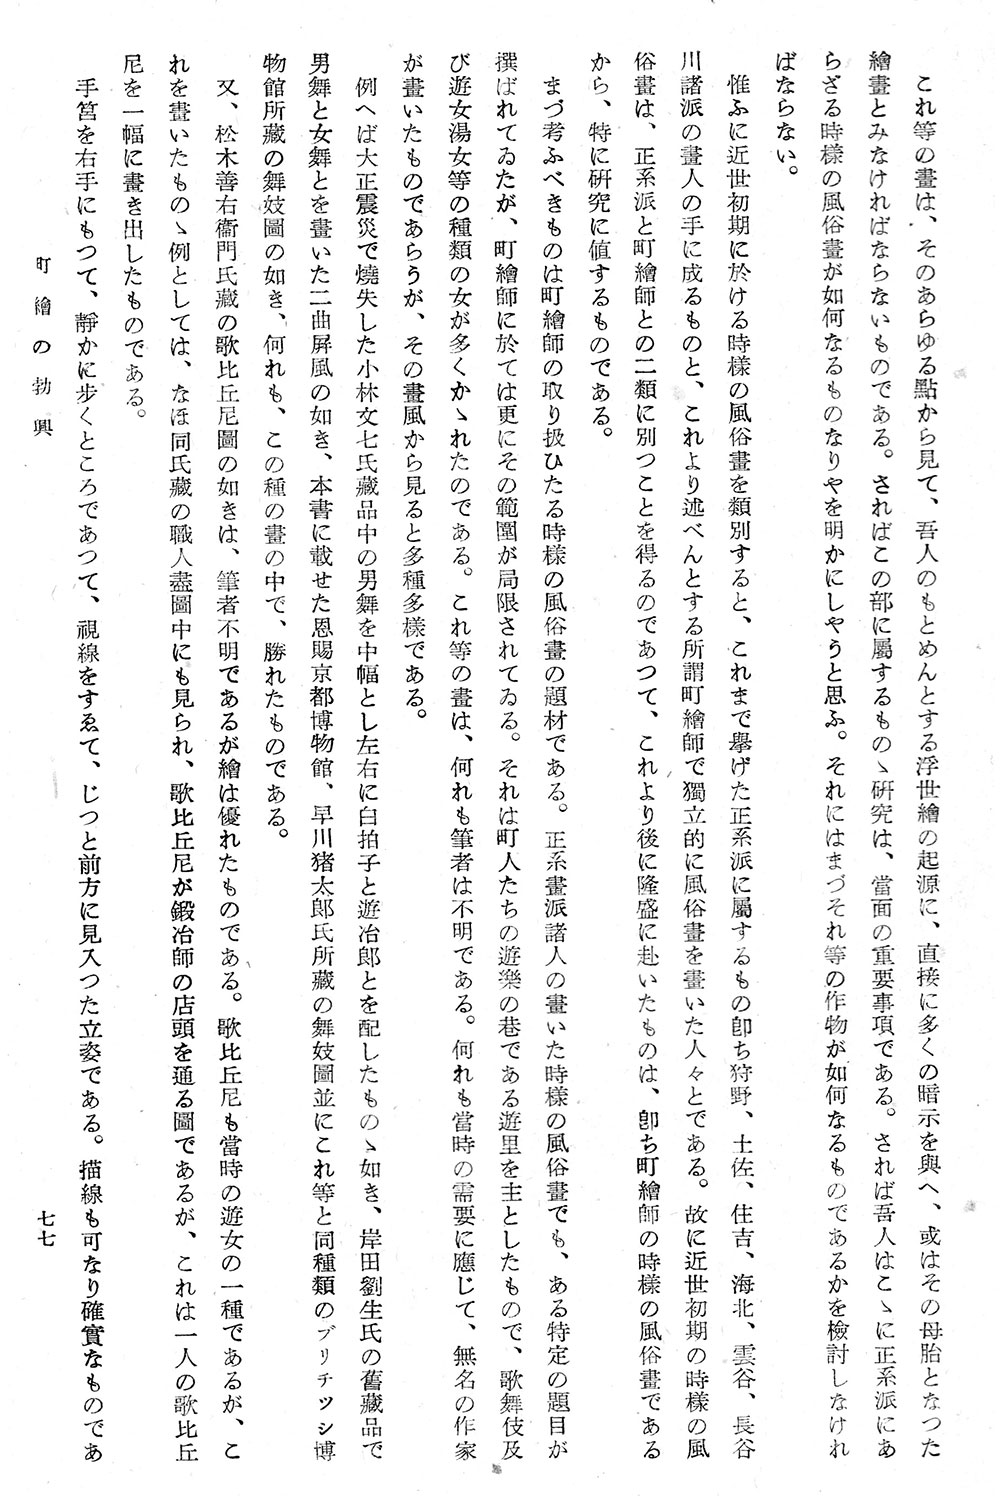 これ等の畫は、そのあらゆる點から見て、吾人のもとめんとする浮世繪の起源に、直接に多くの暗示を與へ、或はその母胎となつた
繪畫とみなければならないものである。さればこの部に屬するものゝ研究は、當面の重要事項である。されば吾人はこゝに正系派にあ
らざる時樣の風俗畫が如何なるものなりやを明かにしやうと思ふ。それにはまづそれ等の作物が如何なるものであるかを檢討しなけれ
ばならない。
惟ふに近世初期に於ける時樣の風俗畫を類別すると、これまで擧げた正系派に屬するもの卽ち狩野、土佐、住吉、海北、雲谷、長谷
川諸派の畫人の手に成るものと、これより述べんとする所謂町繪師で獨立的に風俗畫を畫いた人々とである。故に近世初期の時樣の風
俗畫は、正系派と町繪師との二類に別つことを得るのであつて、これより後に隆盛に赴いたものは、卽ち町繪師の時樣の風俗畫である
から、特に硏究に値するものである。
まづ考ふべきものは町繪師の取り扱ひたる時樣の風俗畫の題材である。正系畫派諸人の畫いた時樣の風俗畫でも、ある特定の題目が
撰ばれてゐたが、町繪師に於ては更にその範圍が局限されてゐる。それは町人たちの遊樂の巷である遊里を主としたもので、歌舞伎及
び遊女湯女等の種類の女が多くかゝれたのである。これ等の畫は、何れも筆者は不明である。何れも當時の需要に應じて、無名の作家
が畫いたものであらうが、その畫風から見ると多種多樣である。
例へば大正震災で燒失した小林文七氏藏品中の男舞を中幅とし左右に白拍子と遊冶郎とを配したものゝ如き、岸田劉生氏の舊藏品で
男舞と女舞とを畫いた二曲屏風の如き、本書に載せた恩賜京都博物館、早川猪太郎氏所藏の舞妓圖並にこれ等と同種類のブリチッシ博
物館所藏の舞妓圖の如き、何れも、この種の畫の中で、勝れたものである。
又、松木善右衞門氏藏の歌比丘尼圖の如きは、筆者不明であるが繪は優れたものである。歌比丘尼も當時の遊女の一種であるが、こ
れを畫いたものゝ例としては、なほ同氏藏の職人盡圖中にも見られ、歌比丘尼が鍛冶師の店頭を通る圖であるが、これは一人の歌比丘
尼を一幅に畫き出したものである。
手筥を右手にもつて、靜かに步くところであつて、視線をすゑて、じつと前方に見入つた立姿である。描線も可なり確實なものであ
町繪の勃興
七七